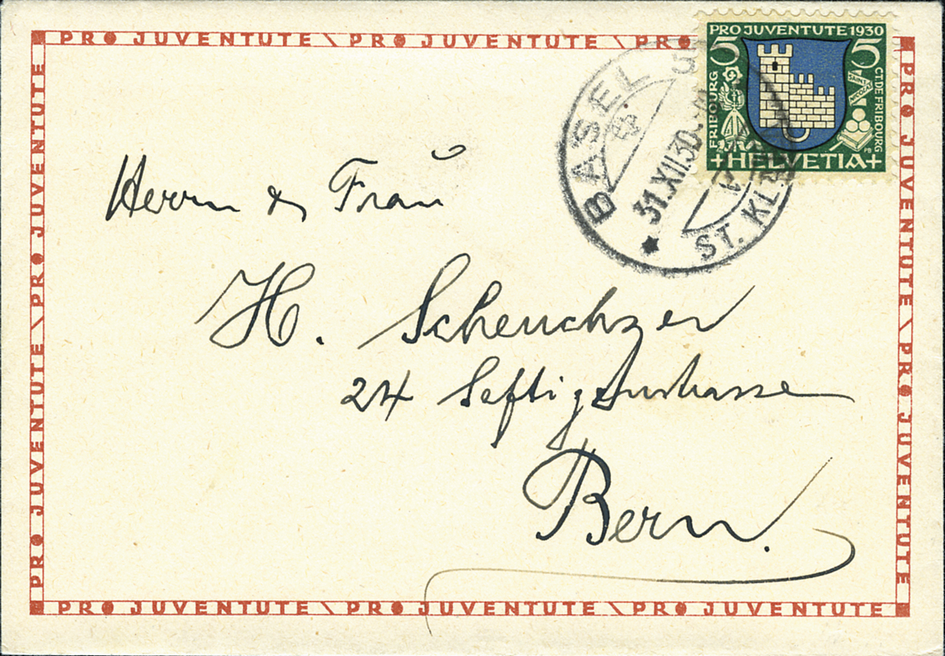 PRO JUVENTUTE \ PRO JUVENTUTE \ PRO
PRO JUVENTUTE 1930
5 5
FRIBOURG
CT. DE FRIBOURG
+HELVETIA+
BASEL
31.XII.30
ST. KL
Herrn & Frau
H. Scheuchzer
24 Seftigenstrasse
Bern.
PRO JUVENTUTE \ PRO JUVENTUTE
PRO JUVENTUTE \ PRO JUVENTUTE
PRO JUVENTUTE \ PRO JUVENTUTE \ PRO JUVENTUTE